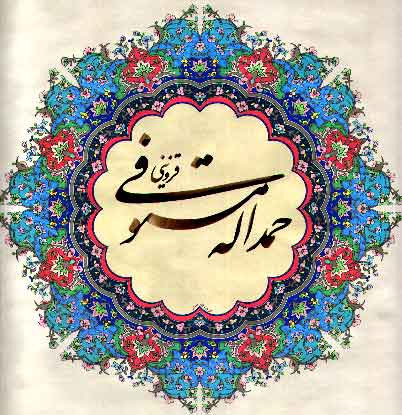 حمدالله مستوفی قزوینی